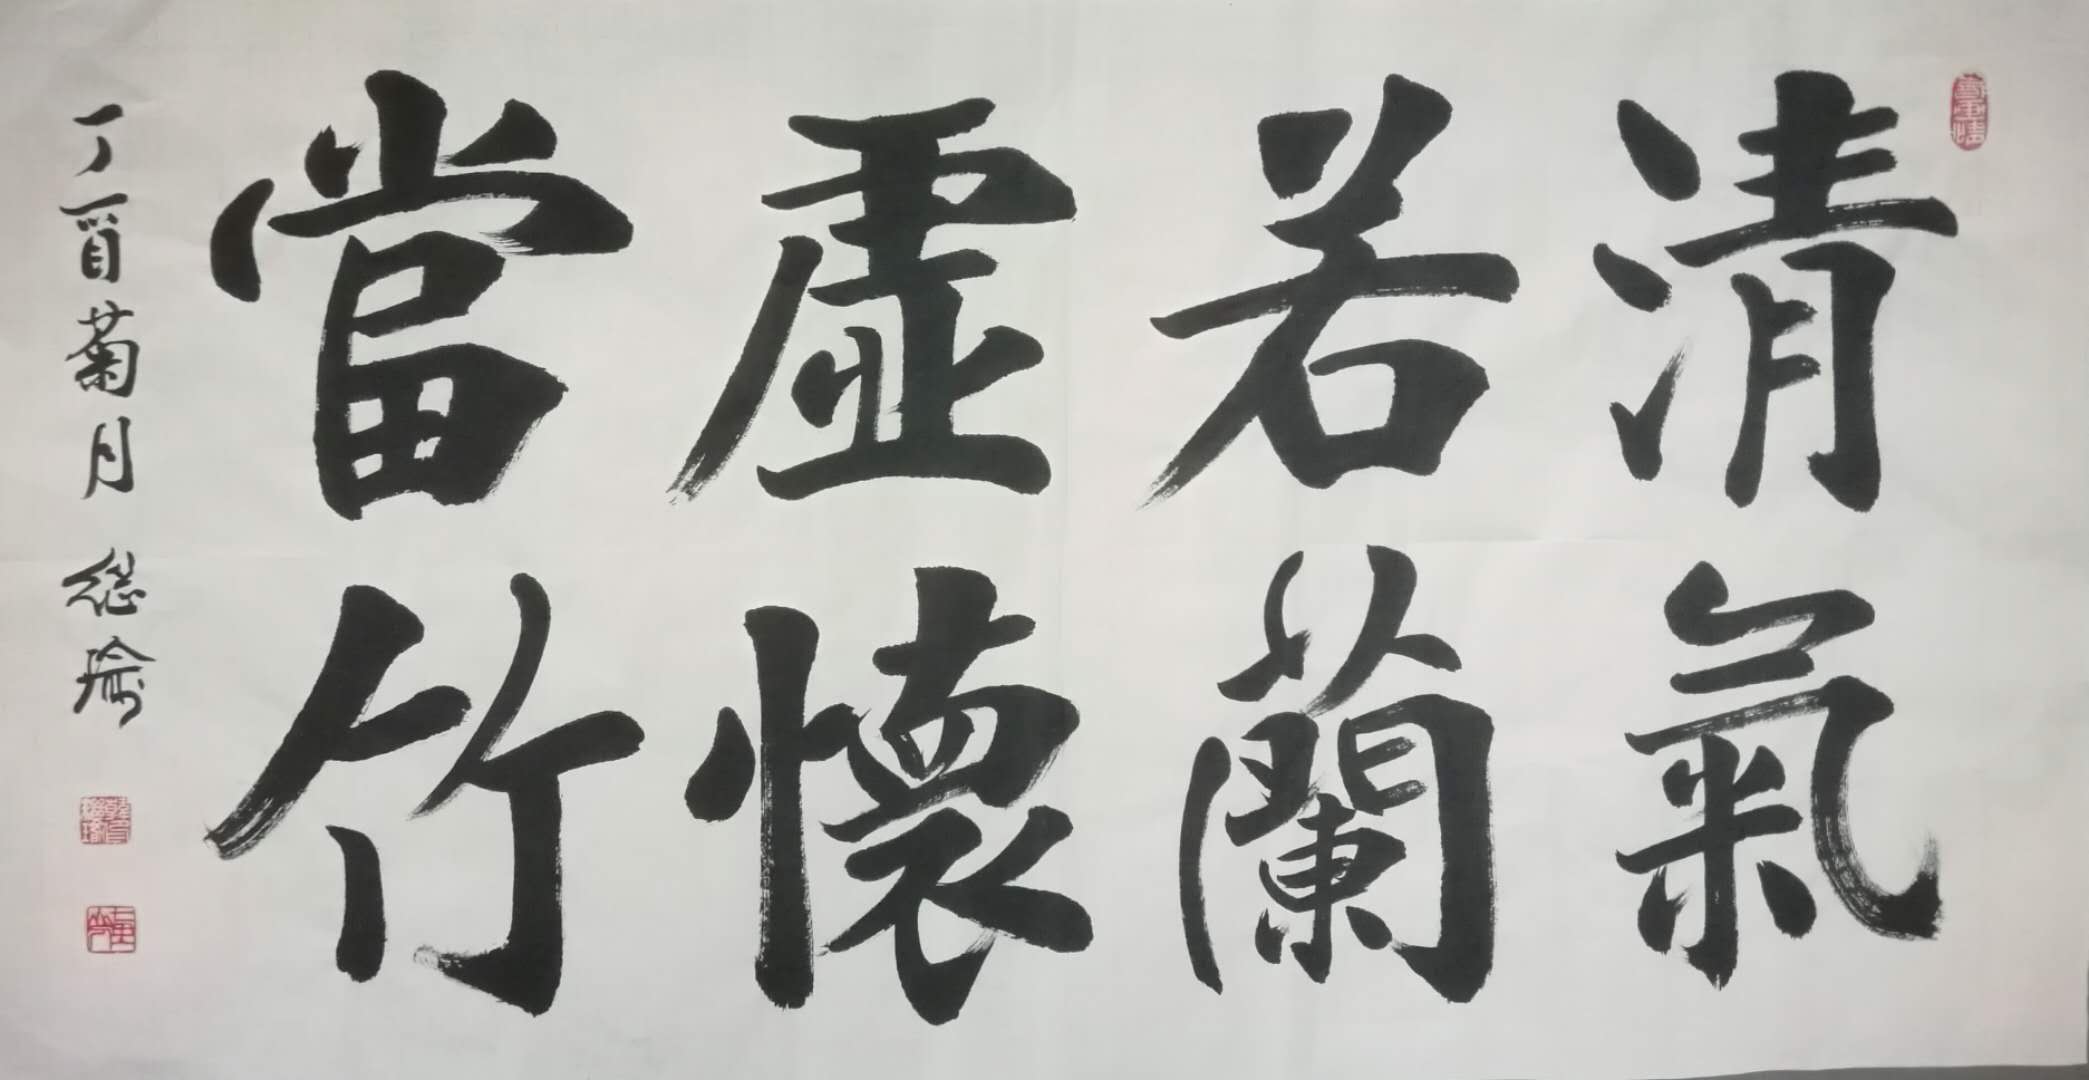 清氣
若蘭
虛懷
當竹
丁酉菊月 繼瑜